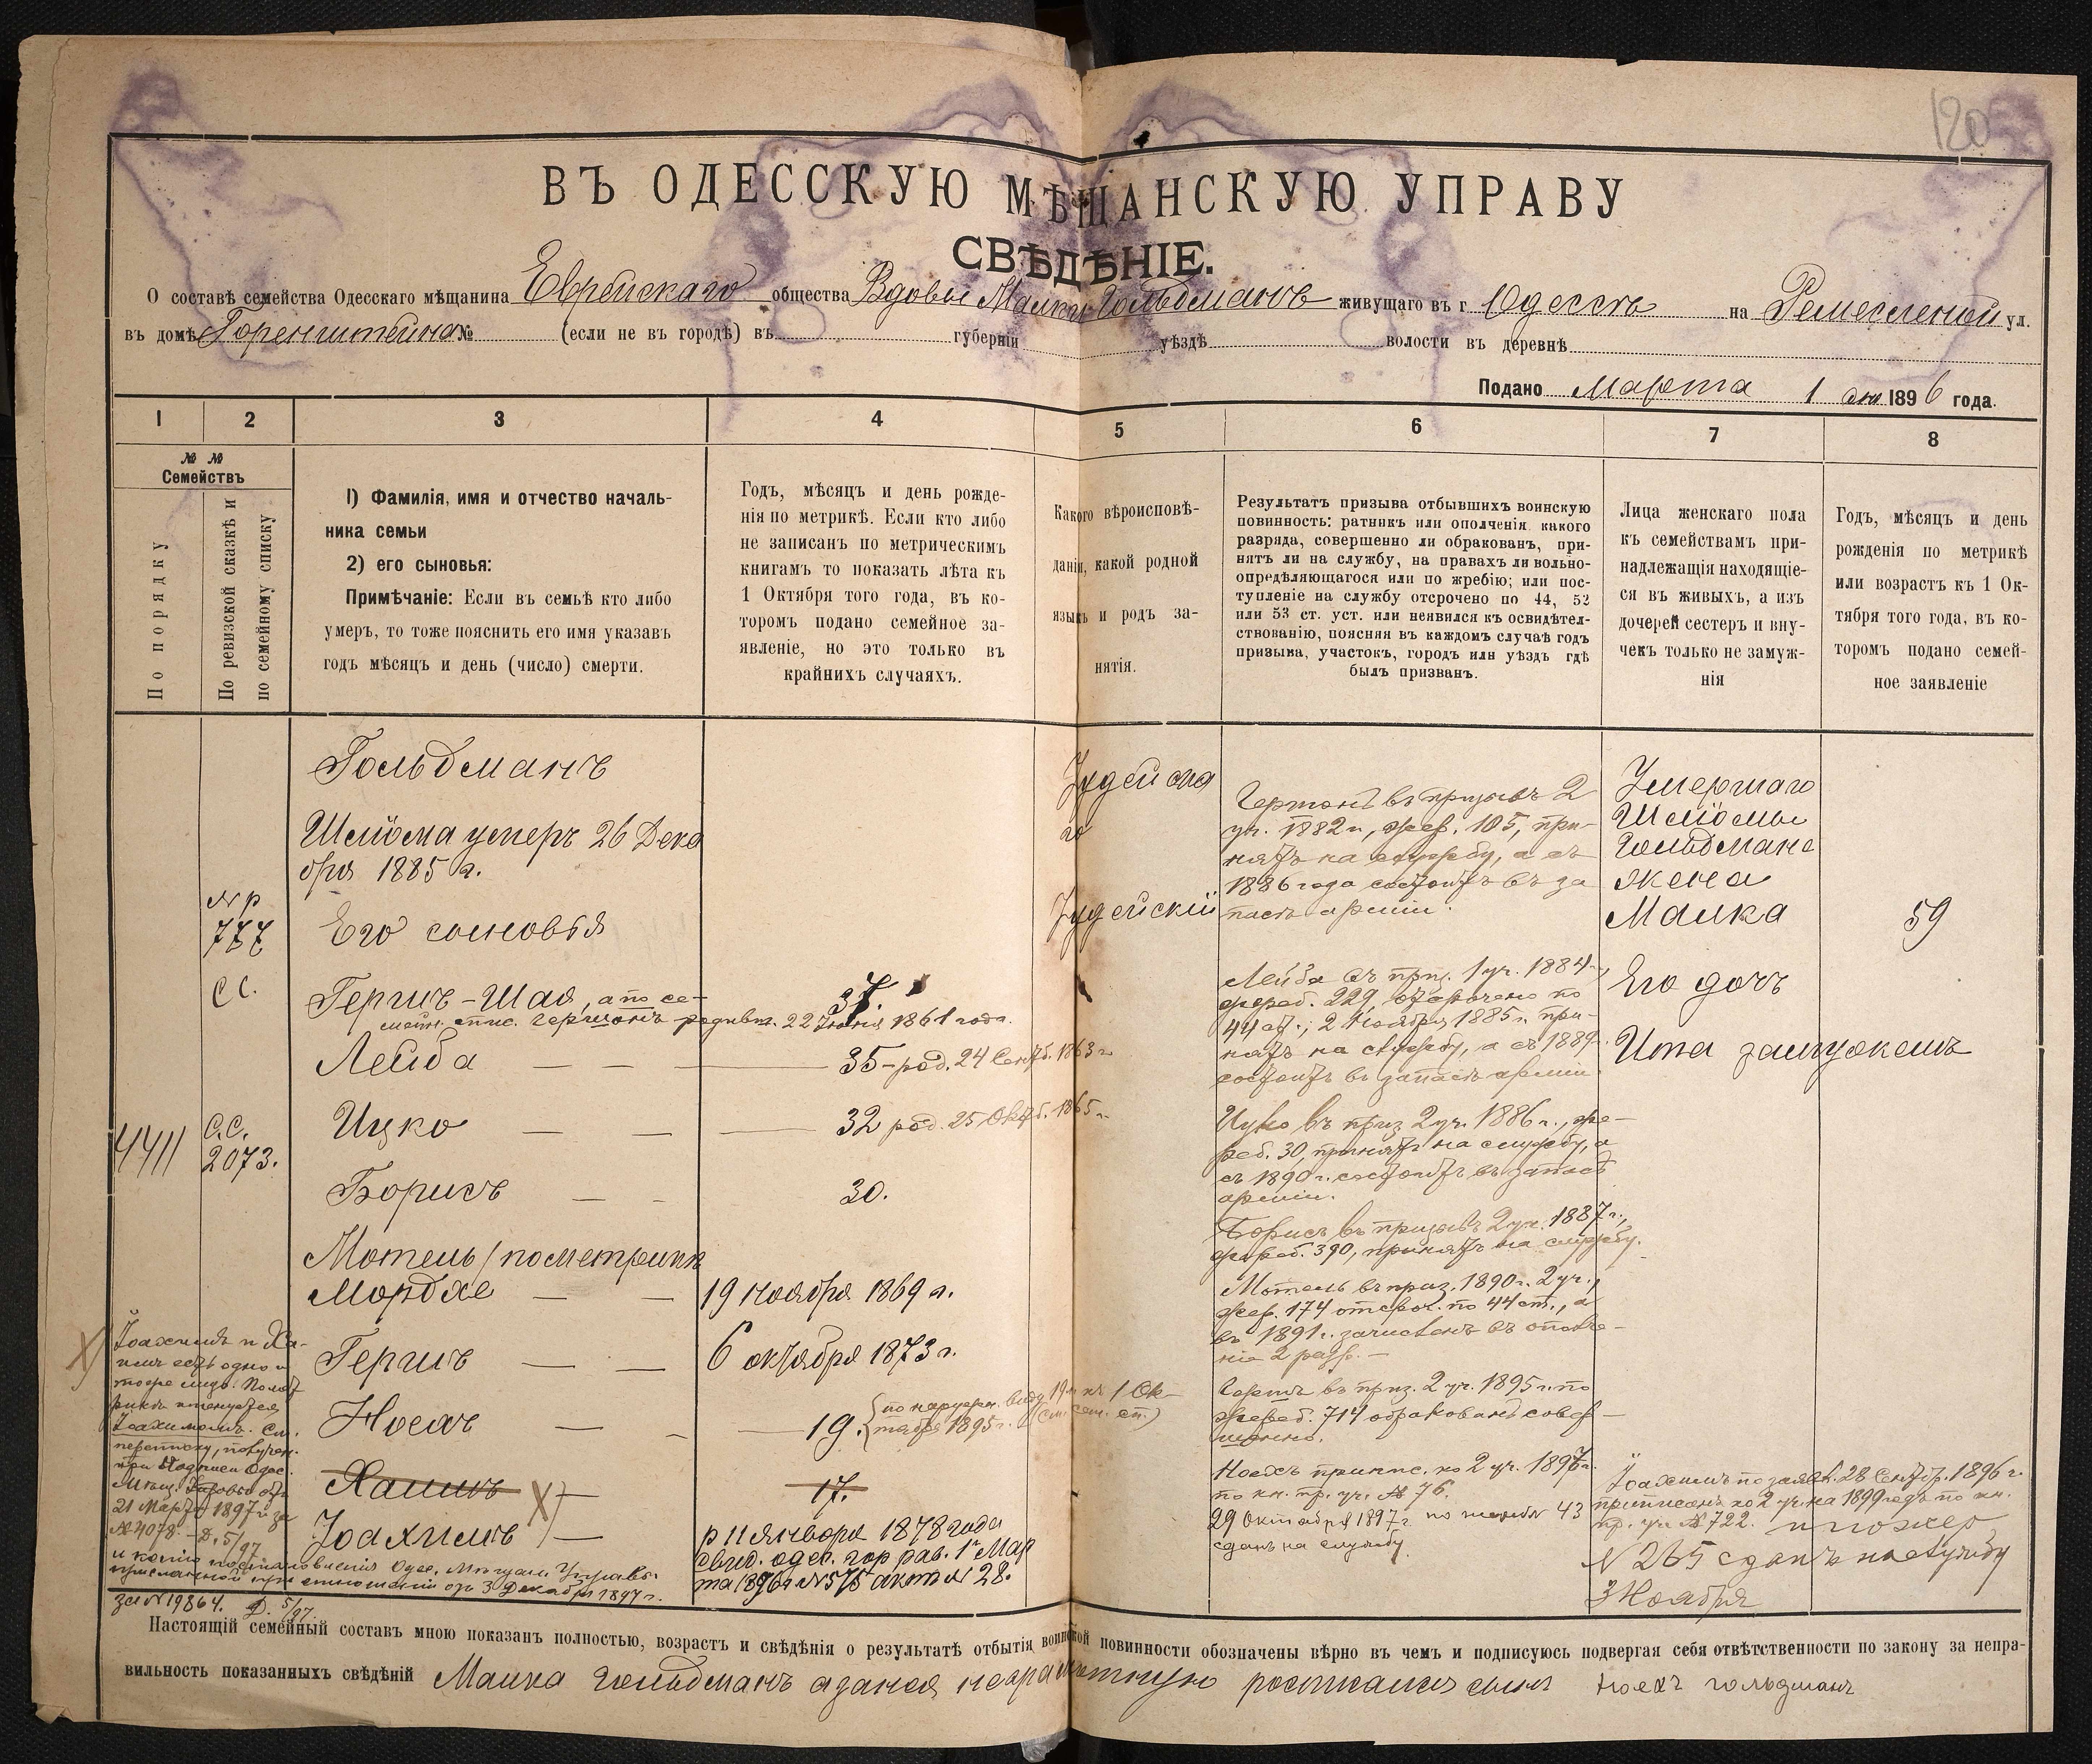 120
ВЪ ОДЕССКУЮ МѢЩАНСКУЮ УПРАВУ
СВѢДѢНІЕ.
О составѣ семейства Одесскаго мѣщанина Еврейскаго общества Вдовы Малки Гольдманъ живущаго въ г. Одессѣ на Ремесленой ул.
въ домѣ Горенштейна № (если не въ городѣ) въ губерніи уѣздѣ волости въ деревнѣ
Подано Марта 1 дня 1896 года.
1
2
3
4
5
6
7
8
№ №
Семействъ
По порядку
По ревизской сказкѣ и
по семейному списку
1) Фамилія, имя и отчество началь-
ника семьи
2) его сыновья:
Примѣчаніе: Если въ семьѣ кто либо
умеръ, то тоже пояснить его имя указавъ
годъ мѣсяцъ и день (число) смерти.
Годъ, мѣсяцъ и день рожде-
нія по метрикѣ. Если кто либо
не записанъ по метрическимъ
книгамъ то показать лѣта къ
1 Октября того года, въ ко-
торомъ подано семейное за-
явленіе, но это только въ
крайнихъ случаяхъ.
Какого вѣроисповѣ-
данія, какой родной
языкъ и родъ за-
нятія.
Результатъ призыва отбывшихъ воинскую
повинность: ратникъ или ополченія какого
разряда, совершенно ли обракованъ, при-
нятъ ли на службу, на правахъ ли вольно-
опредѣляющагося или по жребію; или пос-
тупленіе на службу отсрочено по 44, 52
или 53 ст. уст. или неявился къ освидѣтел-
ствованію, поясняя въ каждомъ случаѣ годъ
призыва, участокъ, городъ или уѣздъ гдѣ
былъ призванъ.
Лица женскаго пола
къ семействамъ при-
надлежащія находящіе-
ся въ живыхъ, а изъ
дочерей сестеръ и вну-
чекъ только не замуж-
нія
Годъ, мѣсяцъ и день
рожденія по метрикѣ
или возрастъ къ 1 Ок-
тября того года, въ ко-
торомъ подано семей-
ное заявленіе
Гольдманъ
Шлiома умеръ 26 Дека
бря 1885 г.
№ р
777
Его сыновья
СС.
Гершъ-Шая, а по се-
мейн. спис. Германъ родивш. 22 Іюня 1861 года.
37.
Лейба — — — 35 - род. 24 Сентб. 1863 г.
4411
С.С.
2073.
Ицко — — — 32 род. 25 Октб. 1865 г.
Борисъ — - 30.
Мотель / по метрикѣ
Мордхе — — 19 ноября 1869 г.
Гершъ — — 6 октября 1873 г.
Ноехъ — - — 19. {по наружн. виду 19 л. къ 1 Ок-
тября 1895 г. (см. сем. сп.)
Хаимъ X) — 17.
Іоахимъ — р 11 января 1878 года
свид. одес. гор рав. 1го Мар
та 1896 г № 575 акт № 28.
X) Іоахимъ и Ха-
имъ есть одно и
тоже лицо. По мет
рикѣ именуется
Іоахимомъ. См.
переписку, получен.
при надписи Одес.
Мѣщ. Управы отъ
21 Марта 1897 г. за
№ 4078. — Д. 5/97
и копію постановленія Одес. Мѣщан. Управы
присланной при отношеніи отъ 3 Декабря 1897 г.
за № 19864. Д. 5/97.
Іудейска
го
Іудейскій
Германъ въ призывѣ 2
уч. 1882 г., жер. 105, при-
нятъ на службу, а съ
1886 года состоитъ въ за
пасѣ арміи.
Лейба въ приз. 1 уч. 1884 г.,
жереб. 229, отсрочено по
44 ст.; 2 Ноября 1885 г. при-
нятъ на службу, а съ 1889 г.
состоитъ въ запасѣ арміи.
Ицко въ приз 2 уч. 1886 г., же-
реб. 30, принятъ на службу, а
съ 1890 г. состоитъ въ запасѣ
арміи.
Борисъ въ призывѣ 2 уч. 1887 г.,
жереб. 390, принятъ на службу.
Мотель въ приз. 1890 г. 2 уч.,
жер. 174 отсроч. по 44 ст., а
въ 1891 г. зачисленъ въ ополче-
ніе 2 разр. —
Гершъ въ приз. 2 уч. 1895 г. по
жереб. 714 обракованъ совер-
шенно.
Ноехъ припис. ко 2 уч. 1897 г.
по кн. пр. уч. № 76.
29 Октября 1897 г по жереб № 43
сданъ на службу.
Умершаго
Шлiомы
Гольдмана
жена
Малка
59
Его дочь
Ита замужемъ
Іоахимъ по заявл. 28 Сентбр. 1896 г.
приписанъ ко 2 уч. на 1899 годъ по кн.
пр. уч № 722. и по жер
№ 265 сданъ на службу
3 Ноября
Настоящій семейный составъ мною показанъ полностью, возрастъ и свѣдѣнія о результатѣ отбытія воинской повинности обозначены вѣрно въ чемъ и подписуюсь подвергая себя отвѣтственности по закону за непра-
вильность показанныхъ свѣдѣній Малка Гольдманъ а за нея неграмотную росписался сынъ Ноехъ Гольдманъ